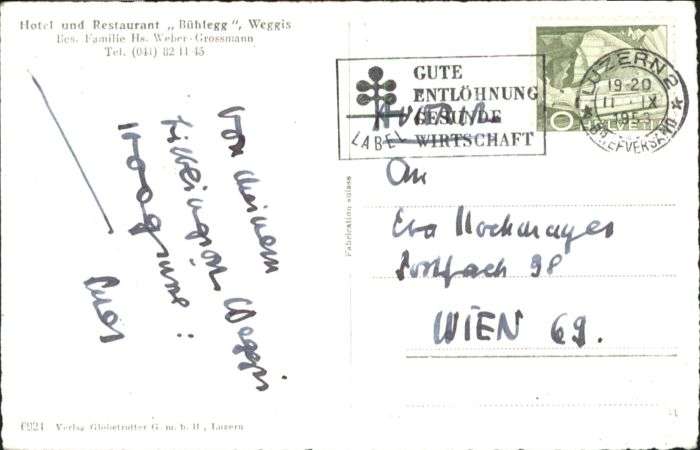 Hotel und Restaurant „Bühlegg", Weggis
Bes. Familie Hs. Weber-Grossmann
Tel. (041) 82 11 45
Von meinem
Lieblingsort Weggis
:
GUTE
ENTLÖHNUNG
GESUNDE
WIRTSCHAFT
LABEL
LUZERN 2
19-20
11. IX
1953
BRIEFVERSAND
HELVETIA
An
Eva Hochmayer
Postfach 98
WIEN 69.
Fabrication suisse
6924 Verlag Globetrotter G. m. b. H., Luzern